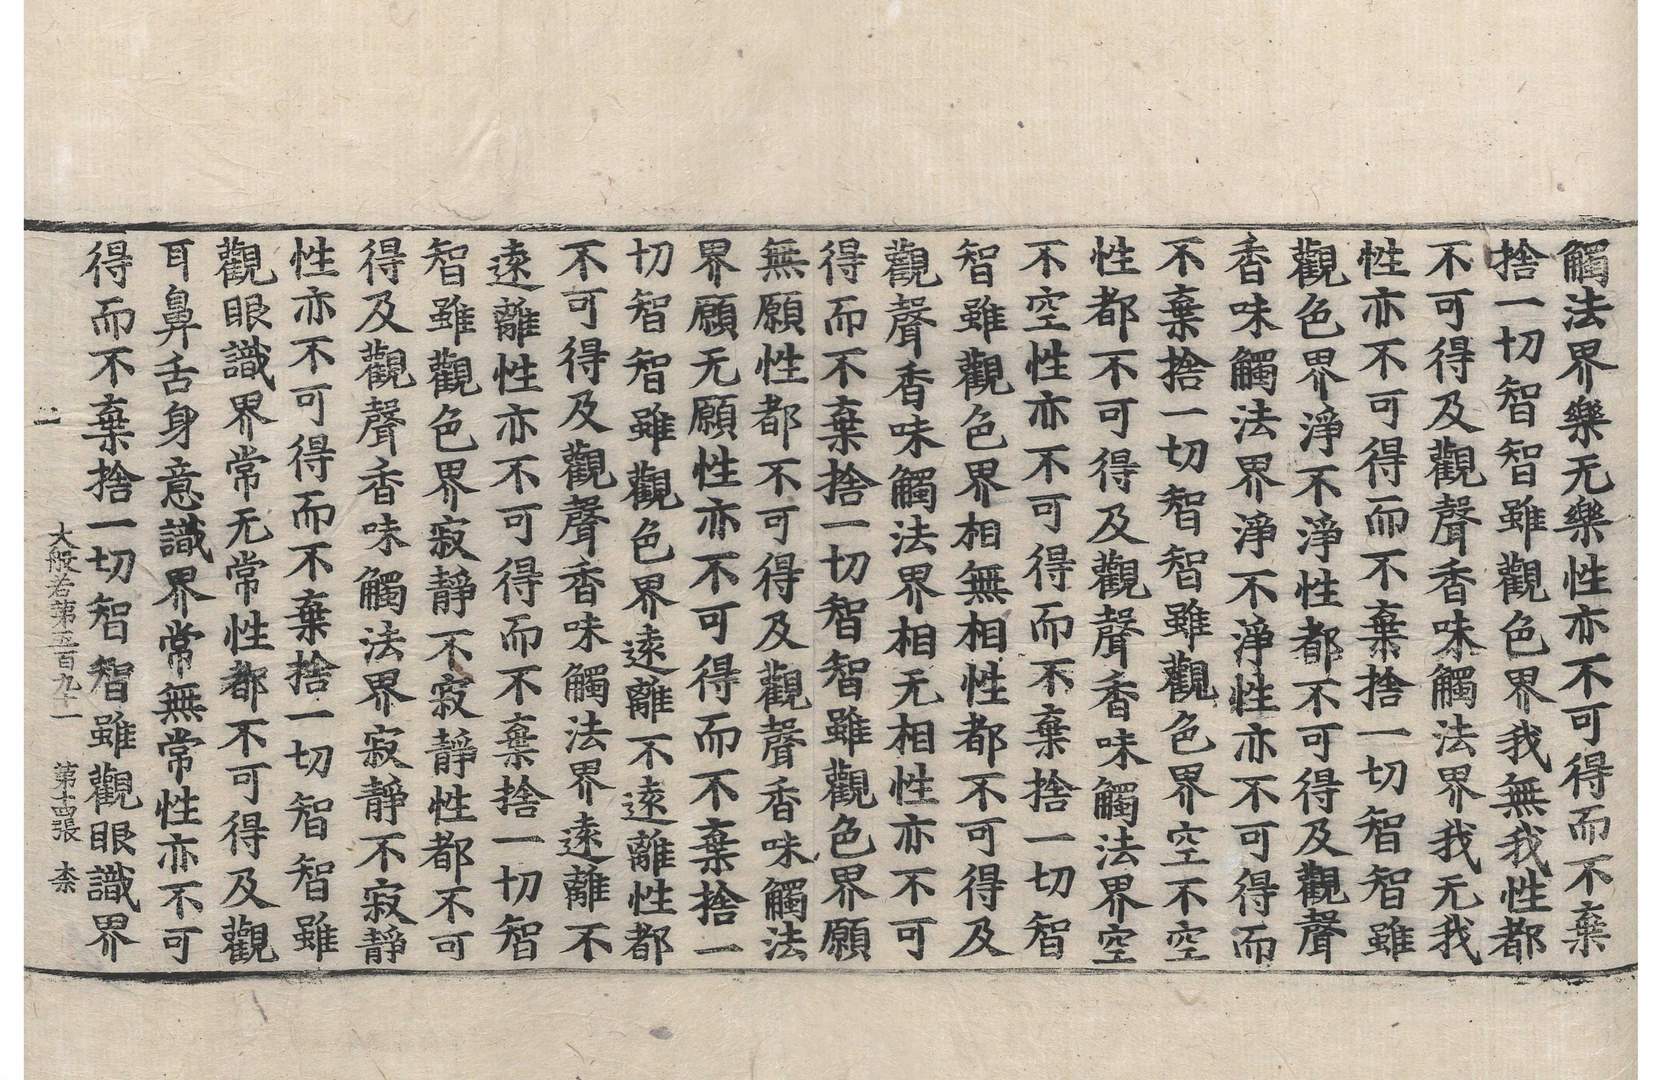 觸法界樂无樂性亦不可得而不棄
捨一切智智雖觀色界我無我性都
不可得及觀聲香味觸法界我无我
性亦不可得而不棄捨一切智智雖
觀色界淨不淨性都不可得及觀聲
香味觸法界淨不淨性亦不可得而
不棄捨一切智智雖觀色界空不空
性都不可得及觀聲香味觸法界空
不空性亦不可得而不棄捨一切智
智雖觀色界相無相性都不可得及
觀聲香味觸法界相无相性亦不可
得而不棄捨一切智智雖觀色界願
無願性都不可得及觀聲香味觸法
界願无願性亦不可得而不棄捨一
切智智雖觀色界遠離不遠離性都
不可得及觀聲香味觸法界遠離不
遠離性亦不可得而不棄捨一切智
智雖觀色界寂靜不寂靜性都不可
得及觀聲香味觸法界寂靜不寂靜
性亦不可得而不棄捨一切智智雖
觀眼識界常无常性都不可得及觀
耳鼻舌身意識界常無常性亦不可
得而不棄捨一切智智雖觀眼識界
大般若第五百九十一 第十四張 柰